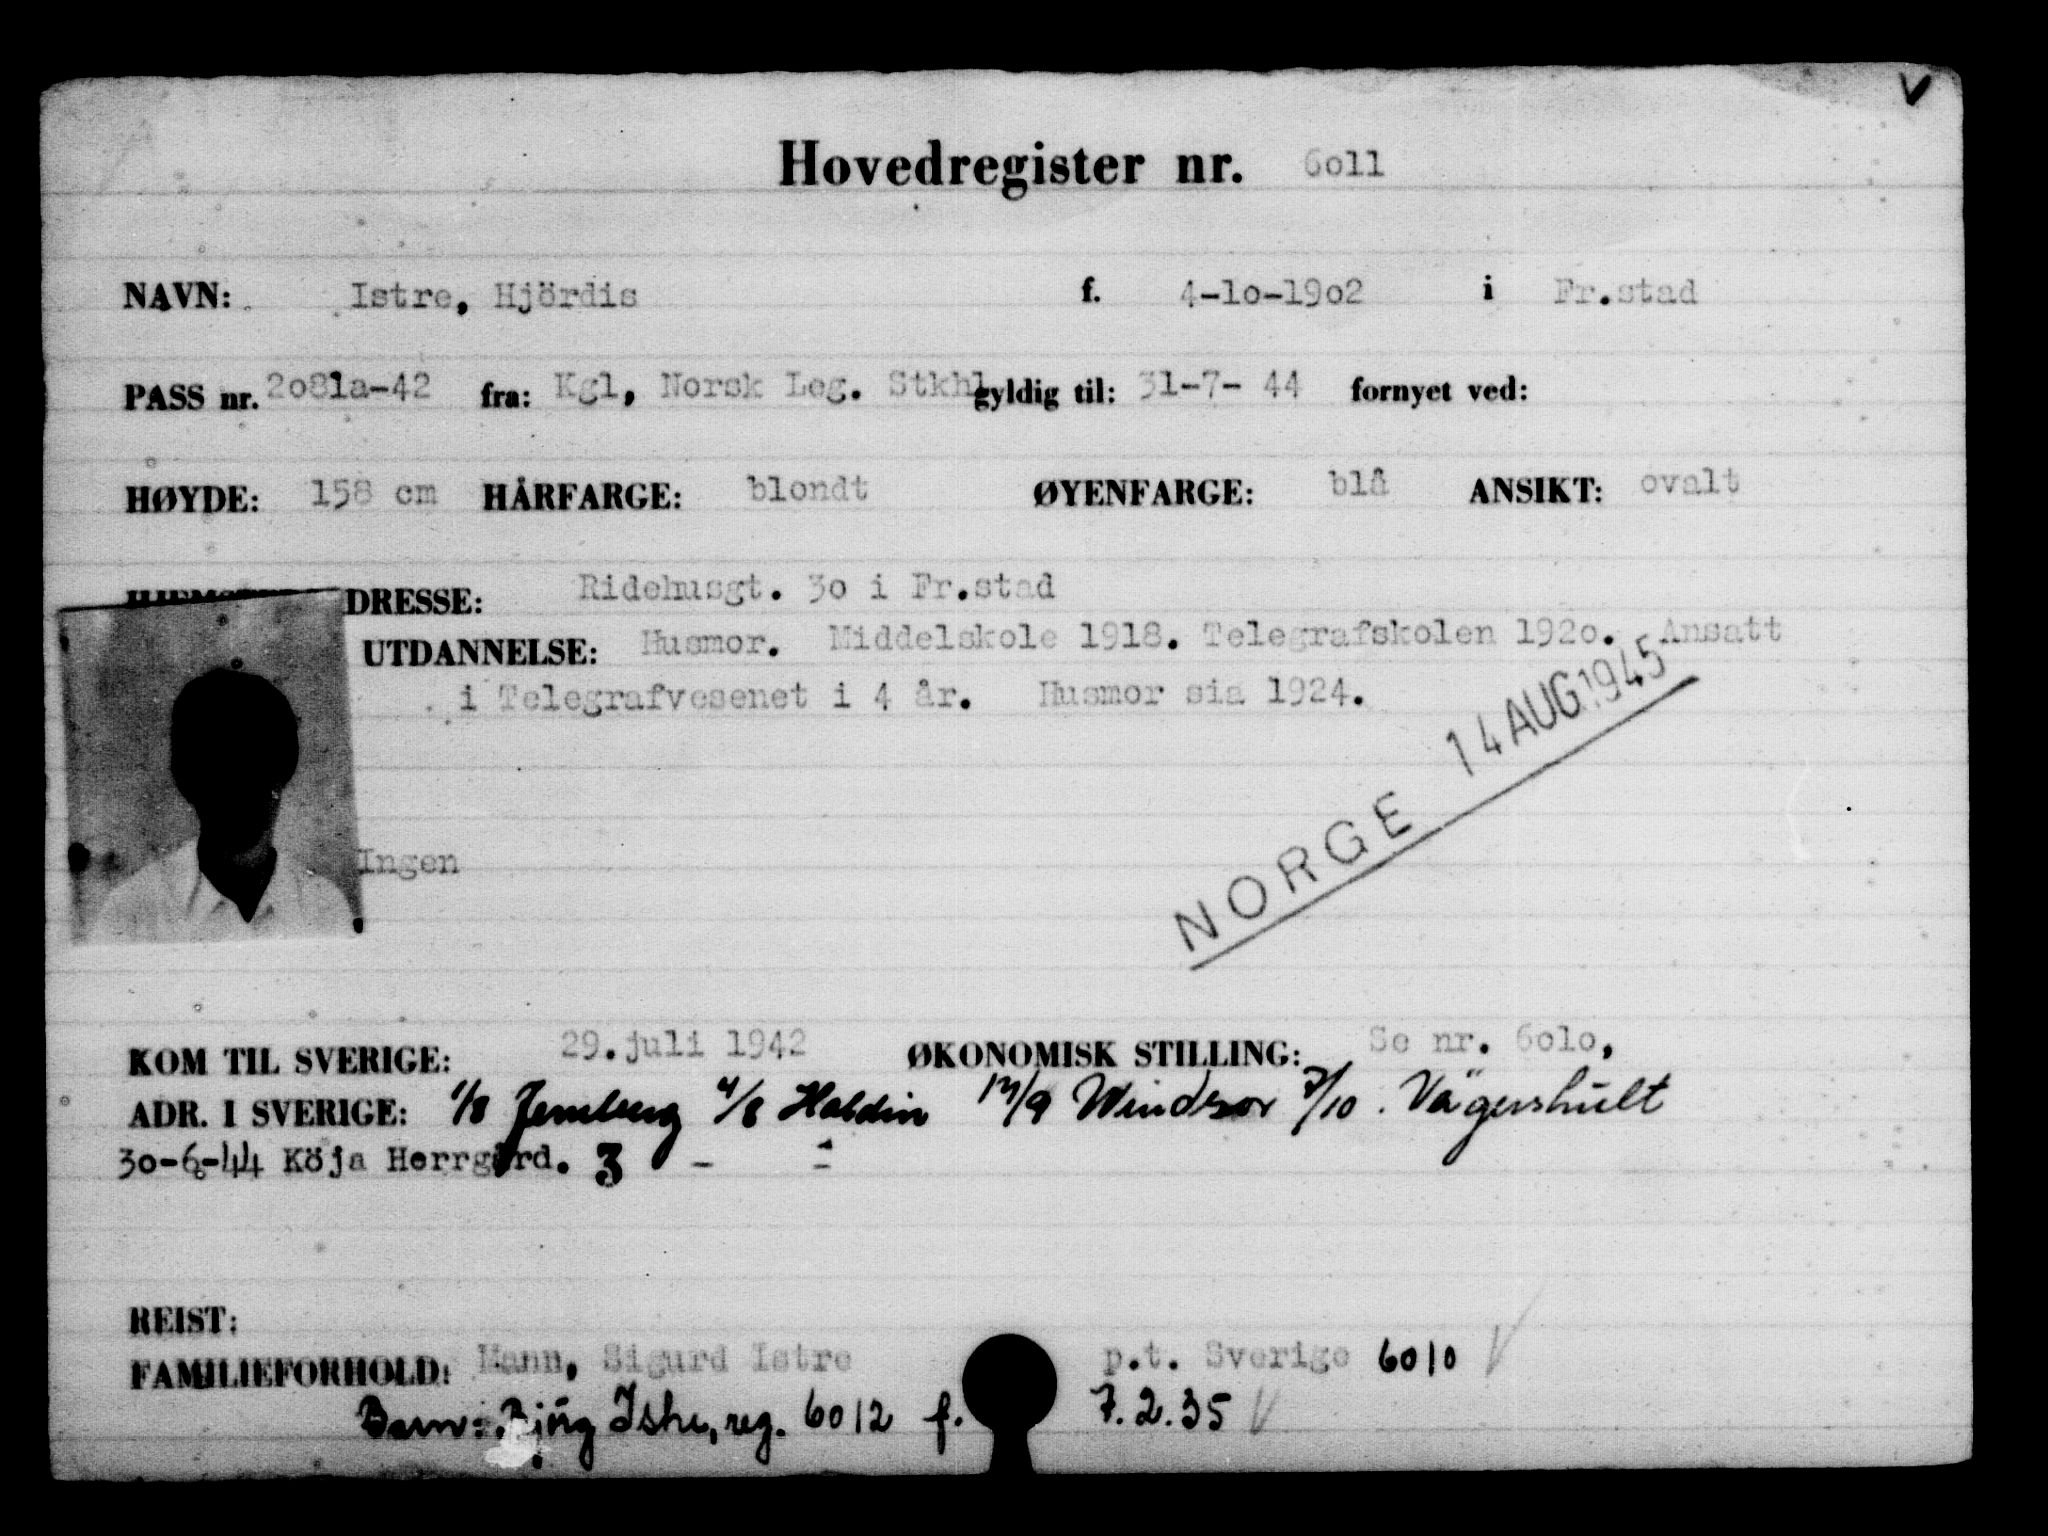 V
Hovedregister nr. 6o11
NAVN: Istre, Hjördis f. 4-1o-19o2 i Fr.stad
PASS nr. 2o81a-42 fra: Kgl, Norsk Leg. Stkhl gyldig til: 31-7- 44 fornyet ved:
HØYDE: 158 cm HÅRFARGE: blondt ØYENFARGE: blå ANSIKT: ovalt
DRESSE: Ridehusgt. 3o i Fr.stad
UTDANNELSE: Husmor. Middelskole 1918. Telegrafskolen 192o. Ansatt
i Telegrafvesenet i 4 år. Husmor sia 1924.
NORGE 14 AUG. 1945
Ingen
KOM TIL SVERIGE: 29.juli 1942 ØKONOMISK STILLING: Se nr. 6o1o,
ADR. I SVERIGE: 1/8 4/8 Haldin 13/9 Windsor 7/10. Vägershult
3o-6-44 Köja Herrgård. 3 - -
REIST:
FAMILIEFORHOLD: Mann, Sigurd Istre p.t. Sverige 6010 V
Barn: Björg Istre, reg. 6012 f. 7.2.35 V